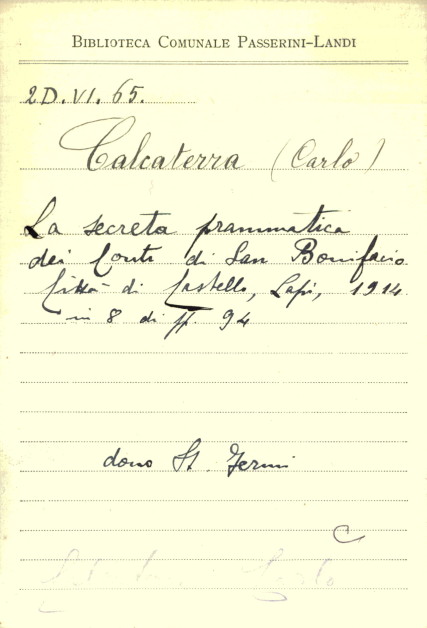 BIBLIOTECA COMUNALE PASSERINI-LANDI
2D.VI.65.
Calcaterra (Carlo)
La secreta prammatica
dei Conti di San Bonifacio
Città di Castello, Lapi, 1914
in 8 di pp. 94
dono St. Fermi
C